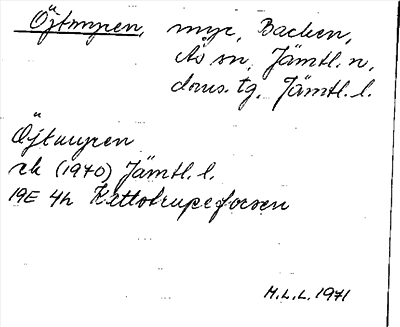 Öjtmyren, myr, Backen,
Ås sn, Jämtl. n,
doms. tg, Jämtl. l.
Öjtmyren
ek (1970) Jämtl. l.
19E 4h Kattstrupeforsen
M.L.L. 1971